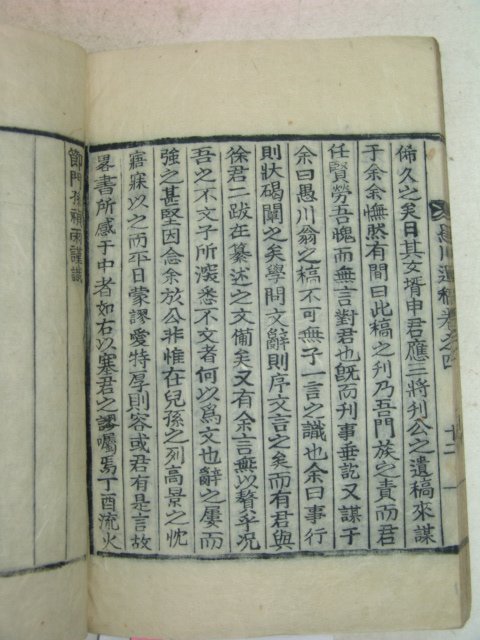 俙久之矣日其女壻申君應三將刋公之遺稿來謀
于余余憮然有間曰此稿之刋乃吾門族之責而君
任賢勞吾愧而無言對君也旣而刋事垂訖又謀于
余曰愚川翁之稿不可無子一言之識也余曰事行
則狀碣闡之矣學問文辭則序文言之矣而有君與
徐君二跋在纂述之文備矣又有余言無以贅乎况
吾之不文子所深悉不文者何以爲文也辭之屢而
強之甚堅因念余於公非惟在兒孫之列高景之忱
寤寐以之而平日蒙謬愛特厚則容或君有是言故
畧書所感于中者如右以塞君之謬囑焉丁酉流火
節門孫
雨謹識
愚川遺稿卷之四
十二